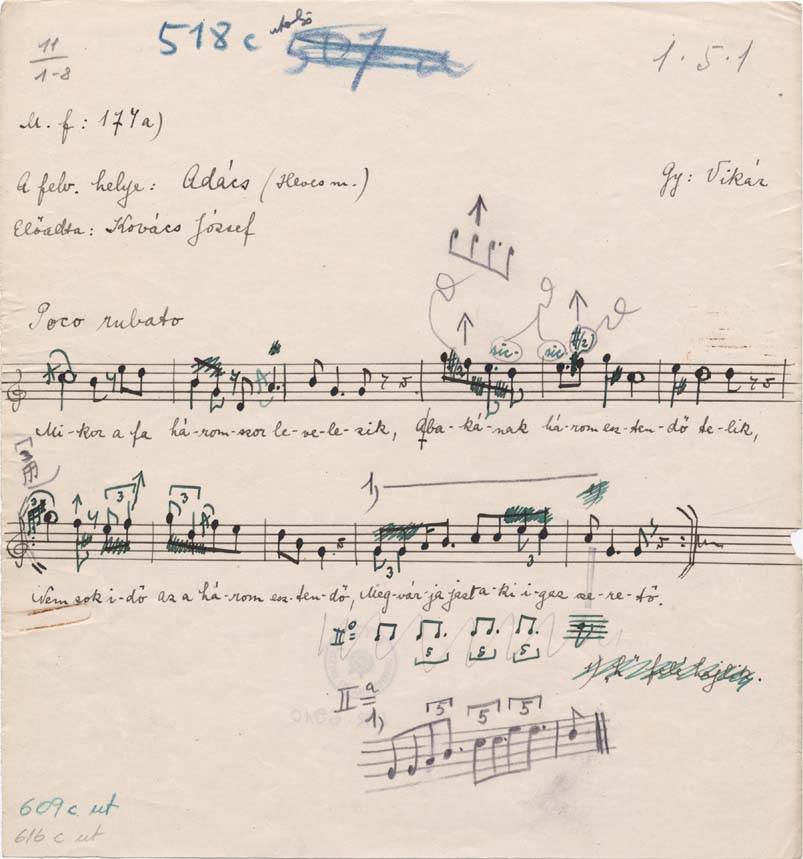 518 c utolsó 507 a
11
1-8
1 · 5 · 1
M. f: 174a)
A felv. helye: Adács (Heves m.)
Gy: Vikár
Előadta: Kovács József
Poco rubato
sic. sic
Mi-kor a fa há-rom-szor le-ve-le-zik, Aba-ká-nak há-rom esz-ten-dő te-lik,
1,
3 3
3
Nem sok i-dő az a há-rom esz-ten-dő, Meg-vár-ja jazt a-ki i-gaz sze-re-tő.
3 3
IIº=
5 5 5
IIª=
1, 5 5 5
609 c ut
616 c ut